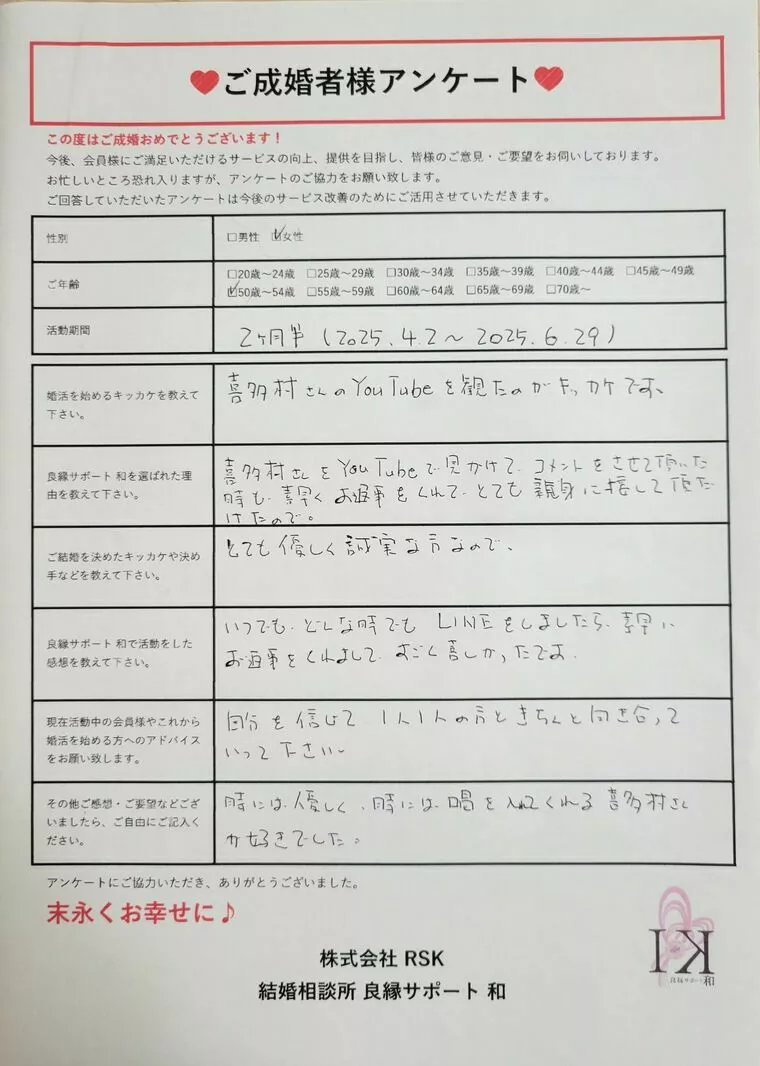 ♥ご成婚者様アンケート♥
この度はご成婚おめでとうございます！
今後、会員様にご満足いただけるサービスの向上、提供を目指し、皆様のご意見・ご要望をお伺いしております。
お忙しいところ恐れ入りますが、アンケートのご協力をお願い致します。
ご回答していただいたアンケートは今後のサービス改善のためにご活用させていただきます。
性別
□男性 ☑女性
ご年齢
□20歳～24歳 □25歳～29歳 □30歳～34歳 □35歳～39歳 □40歳～44歳 □45歳～49歳
☑50歳～54歳 □55歳～59歳 □60歳～64歳 □65歳～69歳 □70歳～
活動期間
2ヶ月半（2025.4.2～2025.6.29）
婚活を始めるキッカケを教えて
下さい。
喜多村さんのYouTubeを観たのがキッカケです。
良縁サポート 和を選ばれた理
由を教えて下さい。
喜多村さんをYouTubeで見かけて、コメントをさせて頂いた
時も、素早くお返事をくれて、とても親身に接して頂だ
けたので。
ご結婚を決めたキッカケや決め
手などを教えて下さい。
とても優しく誠実な方なので、
良縁サポート 和で活動をした
感想を教えて下さい。
いつでも、どんな時でもLINEをしましたら、素早に
お返事をくれまして、すごく喜しかったでお。
現在活動中の会員様やこれから
婚活を始める方へのアドバイス
をお願い致します。
自分を信じて、1人1人の方ときちんと向き合って
いって下さい。
その他ご感想・ご要望などござ
いましたら、ご自由にご記入く
ださい。
時には優しく、時には喝を入れてくれる喜多村さん
が好きでした。
アンケートにご協力いただき、ありがとうございました。
末永くお幸せに♪
株式会社 RSK
結婚相談所 良縁サポート 和
良縁サポート和